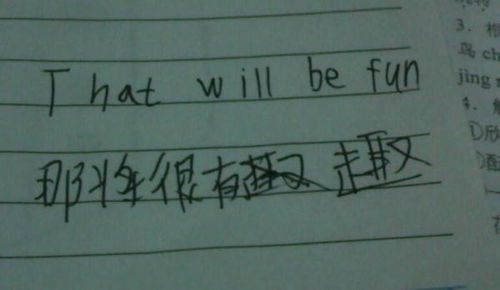 That will be fun
那将很有趣
3.
鸟 ch
jing
4.
①欣